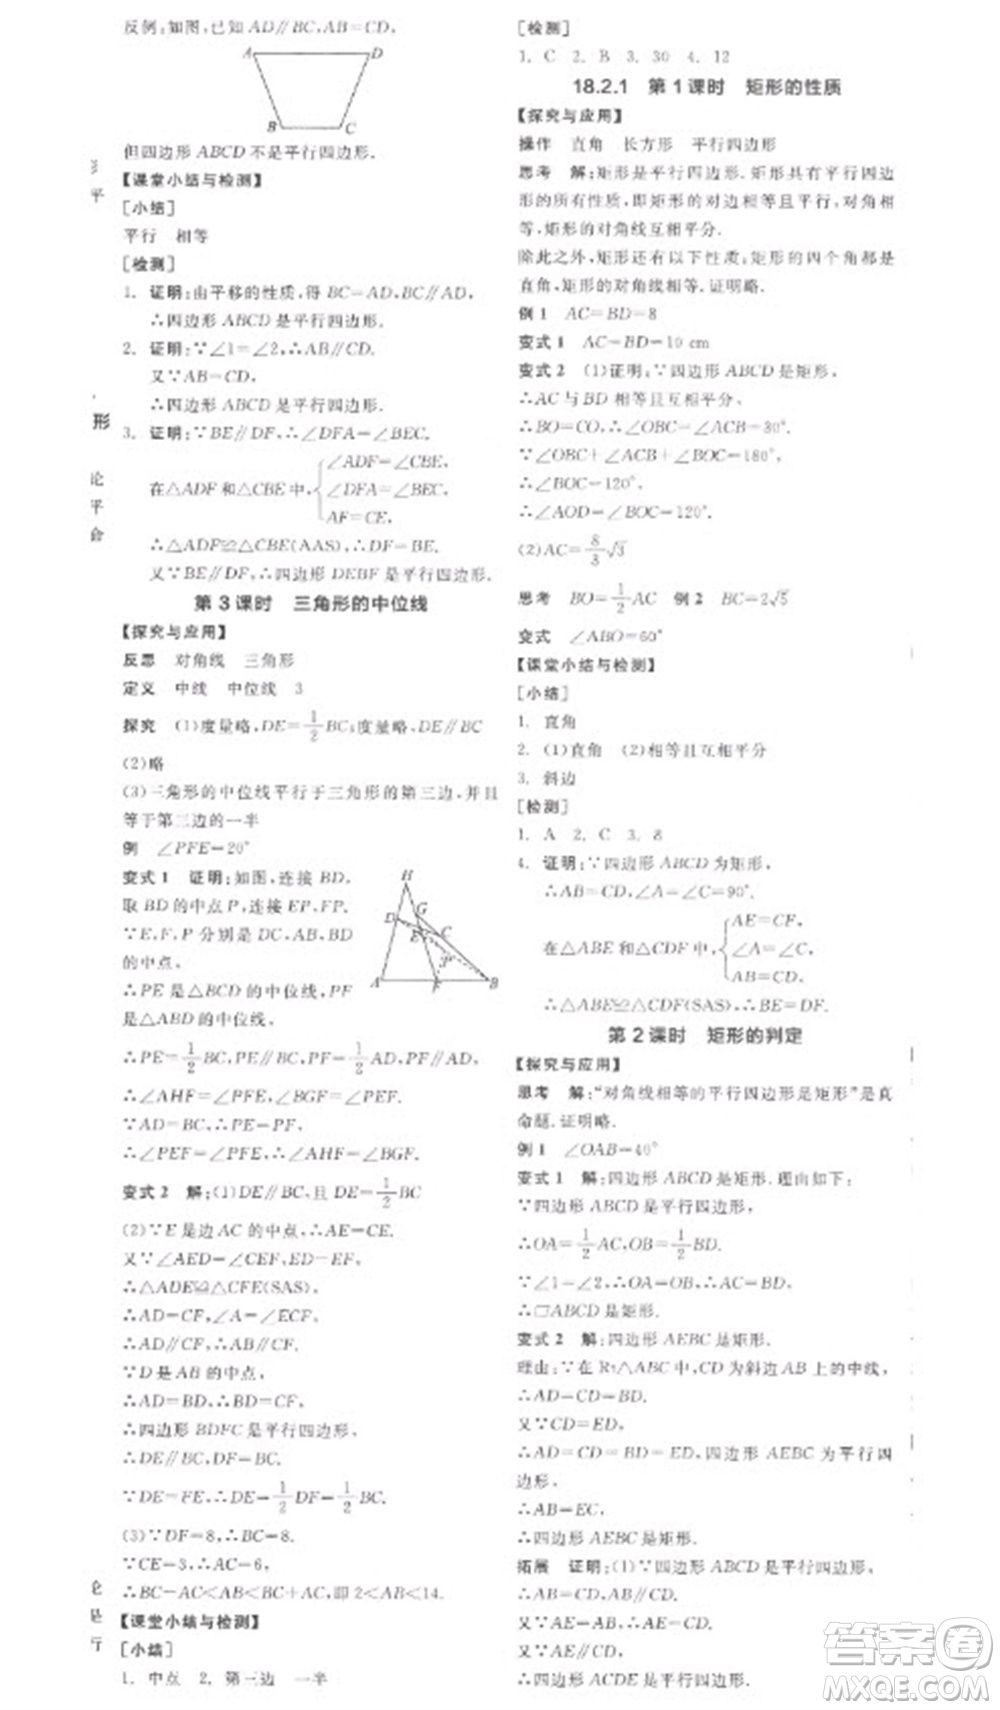 反例:如图,已知 AD∥BC,AB=CD,
A
D
B
C
但四边形 ABCD 不是平行四边形.
【课堂小结与检测】
[小结]
平行　相等
[检测]
1. 证明:由平移的性质,得 BC=AD,BC∥AD,
∴四边形 ABCD 是平行四边形.
2. 证明:∵∠1=∠2,∴AB∥CD.
又∵AB=CD,
∴四边形 ABCD 是平行四边形.
3. 证明:∵BE∥DF,∴∠DFA=∠BEC.
在△ADF 和△CBE 中,
∠ADF=∠CBE,
∠DFA=∠BEC,
AF=CE,
∴△ADF≌△CBE(AAS),∴DF=BE.
又∵BE∥DF,∴四边形 DEBF 是平行四边形.
第 3 课时　三角形的中位线
【探究与应用】
反思　对角线　三角形
定义　中线　中位线　3
探究　(1)度量略,DE=1/2BC;度量略,DE∥BC
(2)略
(3)三角形的中位线平行于三角形的第三边,并且
等于第三边的一半
例　∠PFE=20°
变式 1　证明:如图,连接 BD,
取 BD 的中点 P,连接 EP,FP.
∵E,F,P 分别是 DC,AB,BD
的中点,
∴PE 是△BCD 的中位线,PF
是△ABD 的中位线,
H
G
D
C
E
P
A
F
B
∴PE=1/2BC,PE∥BC,PF=1/2AD,PF∥AD,
∴∠AHF=∠PFE,∠BGF=∠PEF.
∵AD=BC,∴PE=PF,
∴∠PEF=∠PFE,∴∠AHF=∠BGF.
变式 2　解:(1)DE∥BC,且 DE=1/2BC
(2)∵E 是边 AC 的中点,∴AE=CE.
又∵∠AED=∠CEF,ED=EF,
∴△ADE≌△CFE(SAS),
∴AD=CF,∠A=∠ECF,
∴AD∥CF,∴AB∥CF.
∵D 是 AB 的中点,
∴AD=BD,∴BD=CF,
∴四边形 BDFC 是平行四边形,
∴DF∥BC,DF=BC.
∵DE=FE,∴DE=1/2DF=1/2BC.
(3)∵DF=8,∴BC=8.
∵CE=3,∴AC=6,
∴BC-AC<AB<BC+AC,即 2<AB<14.
【课堂小结与检测】
[小结]
1. 中点　2. 第三边　一半
[检测]
1. C　2. B　3. 30　4. 12
18.2.1　第 1 课时　矩形的性质
【探究与应用】
操作　直角　长方形　平行四边形
思考　解:矩形是平行四边形.矩形具有平行四边
形的所有性质,即矩形的对边相等且平行,对角相
等,矩形的对角线互相平分.
除此之外,矩形还有以下性质:矩形的四个角都是
直角,矩形的对角线相等.证明略.
例 1　AC=BD=8
变式 1　AC=BD=10 cm
变式 2　(1)证明:∵四边形 ABCD 是矩形,
∴AC 与 BD 相等且互相平分,
∴BO=CO,∴∠OBC=∠ACB=30°.
∵∠BOC+∠OBC+∠ACB=180°,
∴∠BOC=180°-30°-30°=120°,
∴∠AOD=∠BOC=120°.
(2)AC=8/3√3
思考　BO=1/2AC　例 2　BC=2√5
变式　∠ABO=60°
【课堂小结与检测】
[小结]
1. 直角
2. (1)直角　(2)相等且互相平分
3. 斜边
[检测]
1. A　2. C　3. 8
4. 证明:∵四边形 ABCD 为矩形,
∴AB=CD,∠A=∠C=90°.
在△ABE 和△CDF 中,
AE=CF,
∠A=∠C,
AB=CD,
∴△ABE≌△CDF(SAS),∴BE=DF.
第 2 课时　矩形的判定
【探究与应用】
思考　解:“对角线相等的平行四边形是矩形”是真
命题.证明略.
例 1　∠OAB=40°
变式 1　解:四边形 ABCD 是矩形.理由如下:
∵四边形 ABCD 是平行四边形,
∴OA=1/2AC,OB=1/2BD.
∵∠1=∠2,∴OA=OB,∴AC=BD,
∴□ABCD 是矩形.
变式 2　解:四边形 AEBC 是矩形.
理由:∵在 Rt△ABC 中,CD 为斜边 AB 上的中线,
∴AD=CD=BD.
又∵CD=ED,
∴AD=CD=BD=ED,∴四边形 AEBC 为平行四
边形,
∴AB=EC,
∴四边形 AEBC 是矩形.
拓展　证明:(1)∵四边形 ABCD 是平行四边形,
∴AB∥CD,AB=CD.
又∵AE=AB,∴AE=CD.
又∵AE∥CD,
∴四边形 ACDE 是平行四边形.
形
论
平
命
论
是
行
答案卷
MXQE.COM